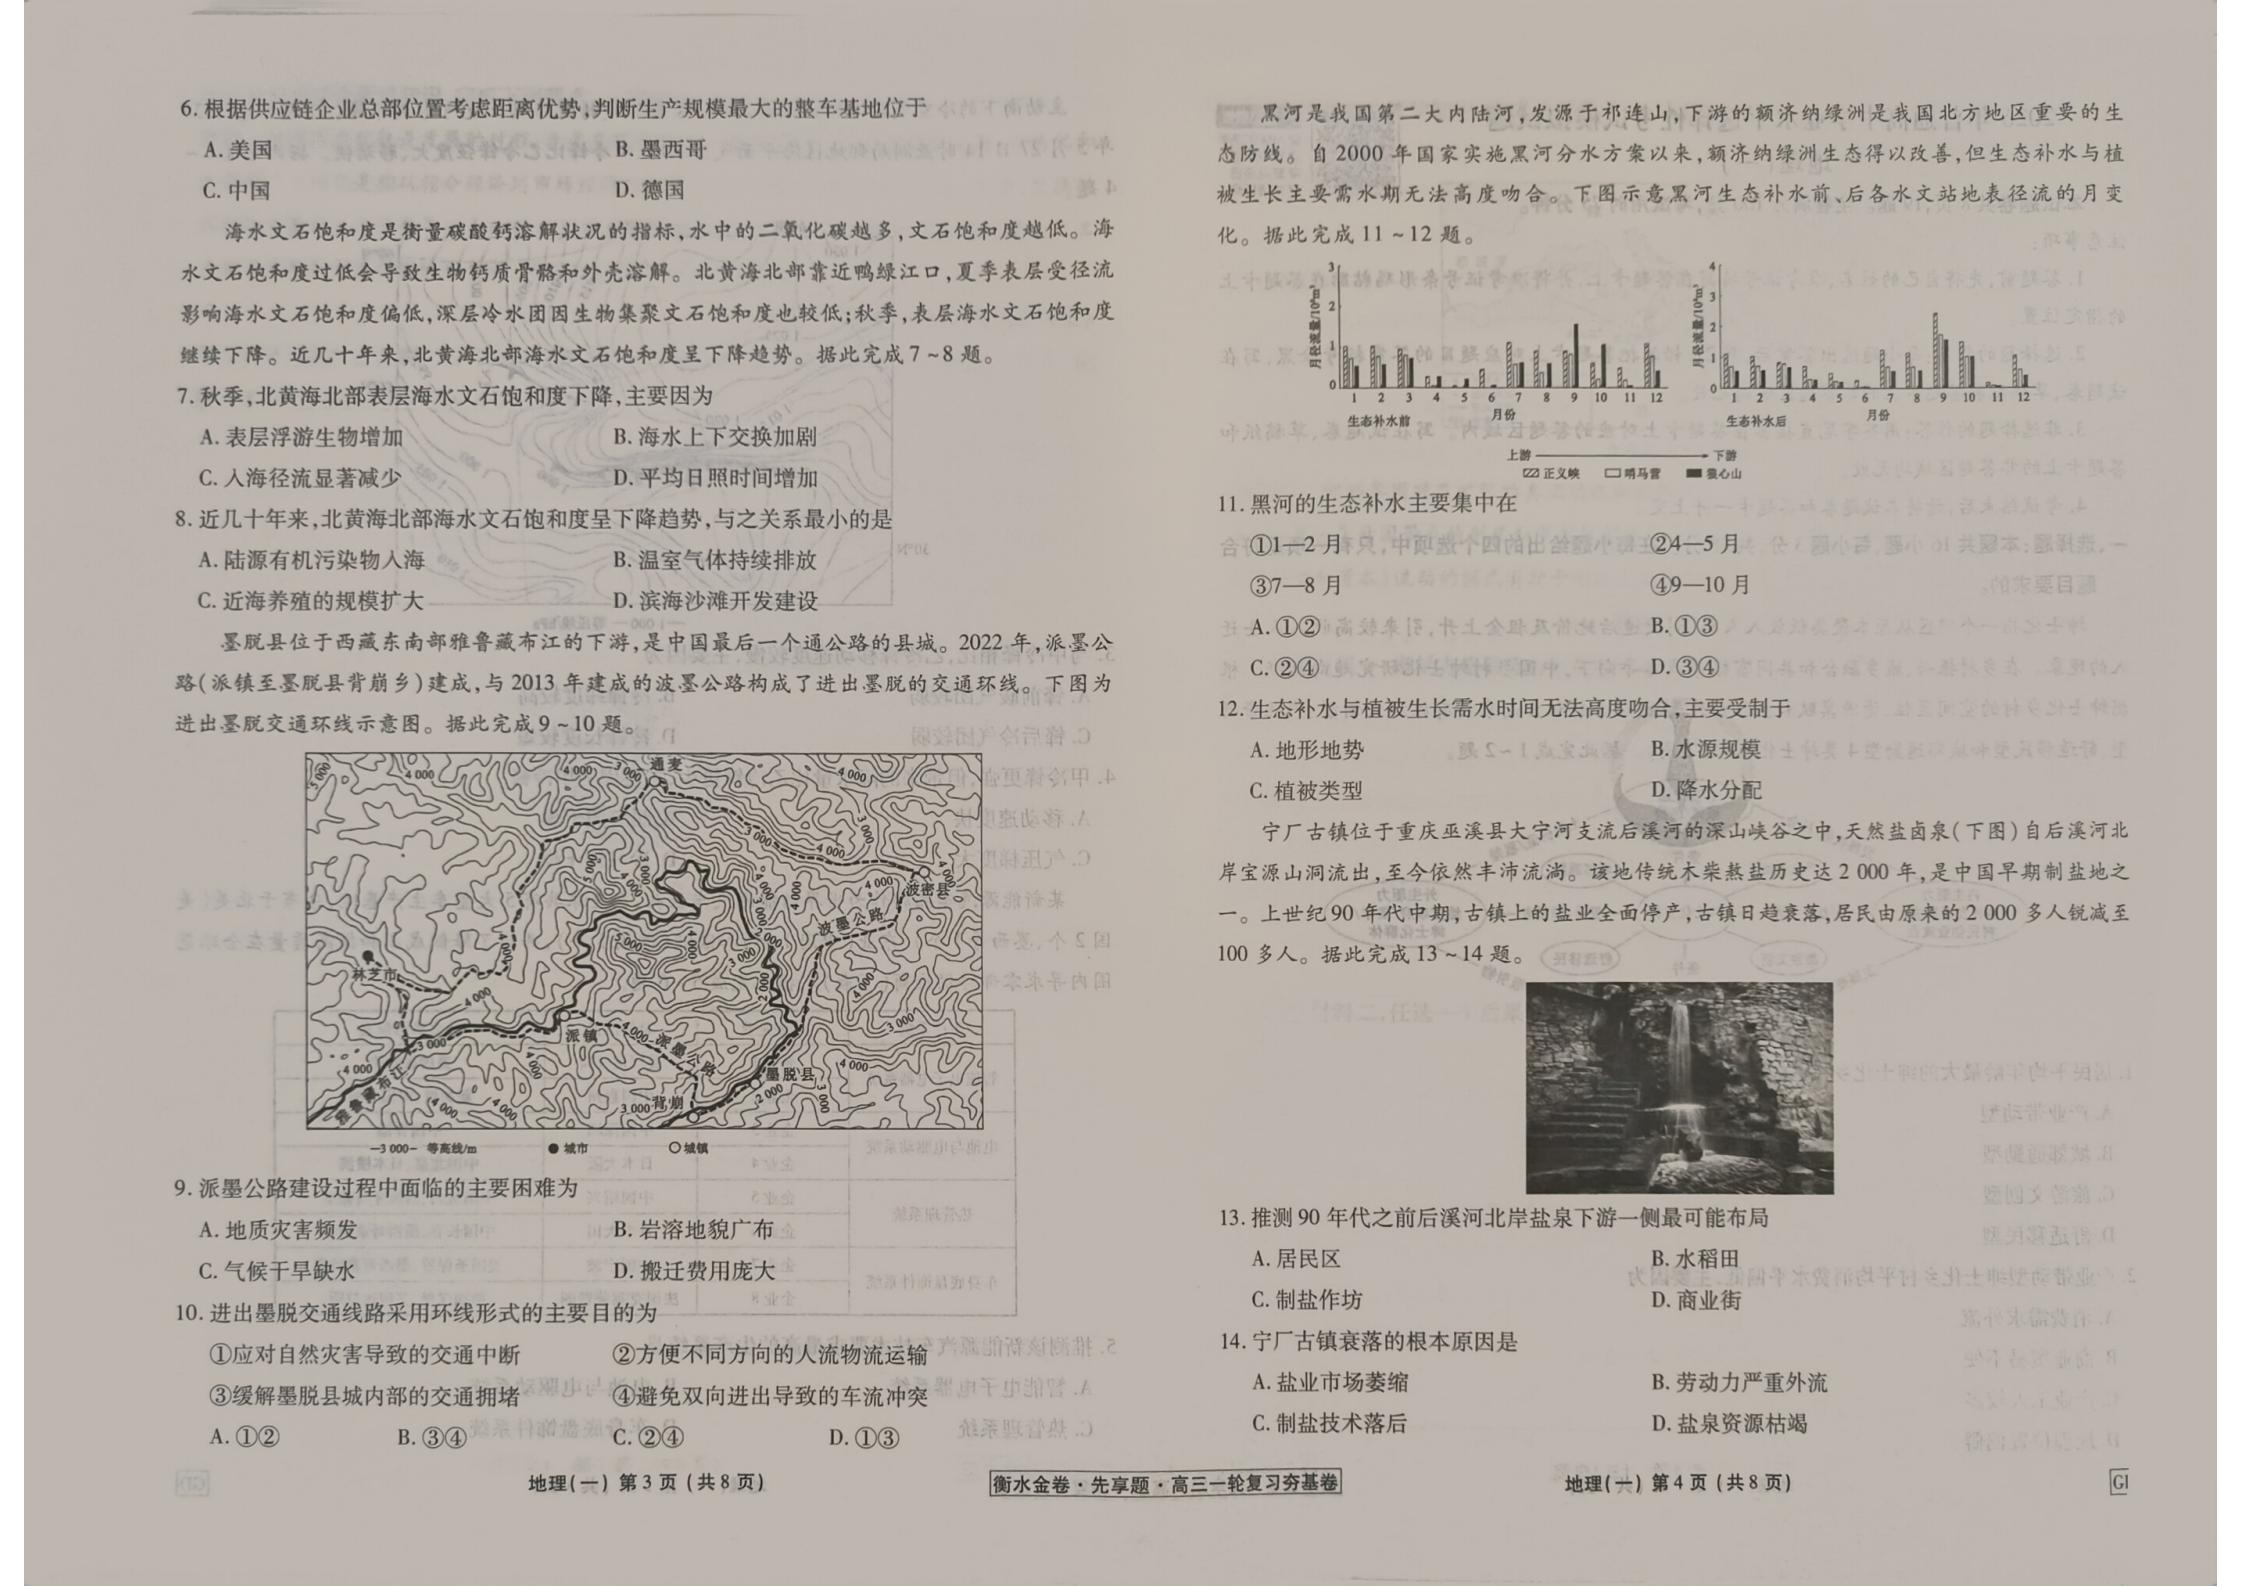 6. 根据供应链企业总部位置考虑距离优势,判断生产规模最大的整车基地位于
A. 美国 B. 墨西哥
C. 中国 D. 德国
海水文石饱和度是衡量碳酸钙溶解状况的指标,水中的二氧化碳越多,文石饱和度越低。海
水文石饱和度过低会导致生物钙质骨骼和外壳溶解。北黄海北部靠近鸭绿江口,夏季表层受径流
影响海水文石饱和度偏低,深层冷水团因生物集聚文石饱和度也较低;秋季,表层海水文石饱和度
继续下降。近几十年来,北黄海北部海水文石饱和度呈下降趋势。据此完成7~8题。
7. 秋季,北黄海北部表层海水文石饱和度下降,主要因为
A. 表层浮游生物增加 B. 海水上下交换加剧
C. 入海径流显著减少 D. 平均日照时间增加
8. 近几十年来,北黄海北部海水文石饱和度呈下降趋势,与之关系最小的是
A. 陆源有机污染物入海 B. 温室气体持续排放
C. 近海养殖的规模扩大 D. 滨海沙滩开发建设
墨脱县位于西藏东南部雅鲁藏布江的下游,是中国最后一个通公路的县城。2022年,派墨公
路(派镇至墨脱县背崩乡)建成,与2013年建成的波墨公路构成了进出墨脱的交通环线。下图为
进出墨脱交通环线示意图。据此完成9~10题。
5 000 4 000 4 000 3 000 通麦 4 000
3 000 3 000 4 000
5 000 3 000 4 000 4 000 4 000 波密县 4 000
波墨公路
4 000 5 000 4 000 3 000 2 000
林芝市 4 000 2 000 4 000
3 000 派镇 4 000 派墨公路 3 000
4 000 4 000 墨脱县 4 000
雅鲁藏布江 4 000 4 000 3 000 背崩 2 000 3 000
—3 000— 等高线/m ●城市 ○城镇
9. 派墨公路建设过程中面临的主要困难为
A. 地质灾害频发 B. 岩溶地貌广布
C. 气候干旱缺水 D. 搬迁费用庞大
10. 进出墨脱交通线路采用环线形式的主要目的为
①应对自然灾害导致的交通中断 ②方便不同方向的人流物流运输
③缓解墨脱县城内部的交通拥堵 ④避免双向进出导致的车流冲突
A. ①② B. ③④ C. ②④ D. ①③
地理(一) 第3页(共8页)
黑河是我国第二大内陆河,发源于祁连山,下游的额济纳绿洲是我国北方地区重要的生
态防线。自2000年国家实施黑河分水方案以来,额济纳绿洲生态得以改善,但生态补水与植
被生长主要需水期无法高度吻合。下图示意黑河生态补水前、后各水文站地表径流的月变
化。据此完成11~12题。
月径流量/10⁸m³
3
2
1
0
1 2 3 4 5 6 7 8 9 10 11 12
生态补水前 月份
月径流量/10⁸m³
4
3
2
1
0
1 2 3 4 5 6 7 8 9 10 11 12
生态补水后 月份
上游 下游
正义峡 哨马营 狼心山
11. 黑河的生态补水主要集中在
①1—2月 ②4—5月
③7—8月 ④9—10月
A. ①② B. ①③
C. ②④ D. ③④
12. 生态补水与植被生长需水时间无法高度吻合,主要受制于
A. 地形地势 B. 水源规模
C. 植被类型 D. 降水分配
宁厂古镇位于重庆巫溪县大宁河支流后溪河的深山峡谷之中,天然盐卤泉(下图)自后溪河北
岸宝源山洞流出,至今依然丰沛流淌。该地传统木柴熬盐历史达2 000年,是中国早期制盐地之
一。上世纪90年代中期,古镇上的盐业全面停产,古镇日趋衰落,居民由原来的2 000多人锐减至
100多人。据此完成13~14题。
13. 推测90年代之前后溪河北岸盐泉下游一侧最可能布局
A. 居民区 B. 水稻田
C. 制盐作坊 D. 商业街
14. 宁厂古镇衰落的根本原因是
A. 盐业市场萎缩 B. 劳动力严重外流
C. 制盐技术落后 D. 盐泉资源枯竭
衡水金卷·先享题·高三一轮复习夯基卷
地理(一) 第4页(共8页)